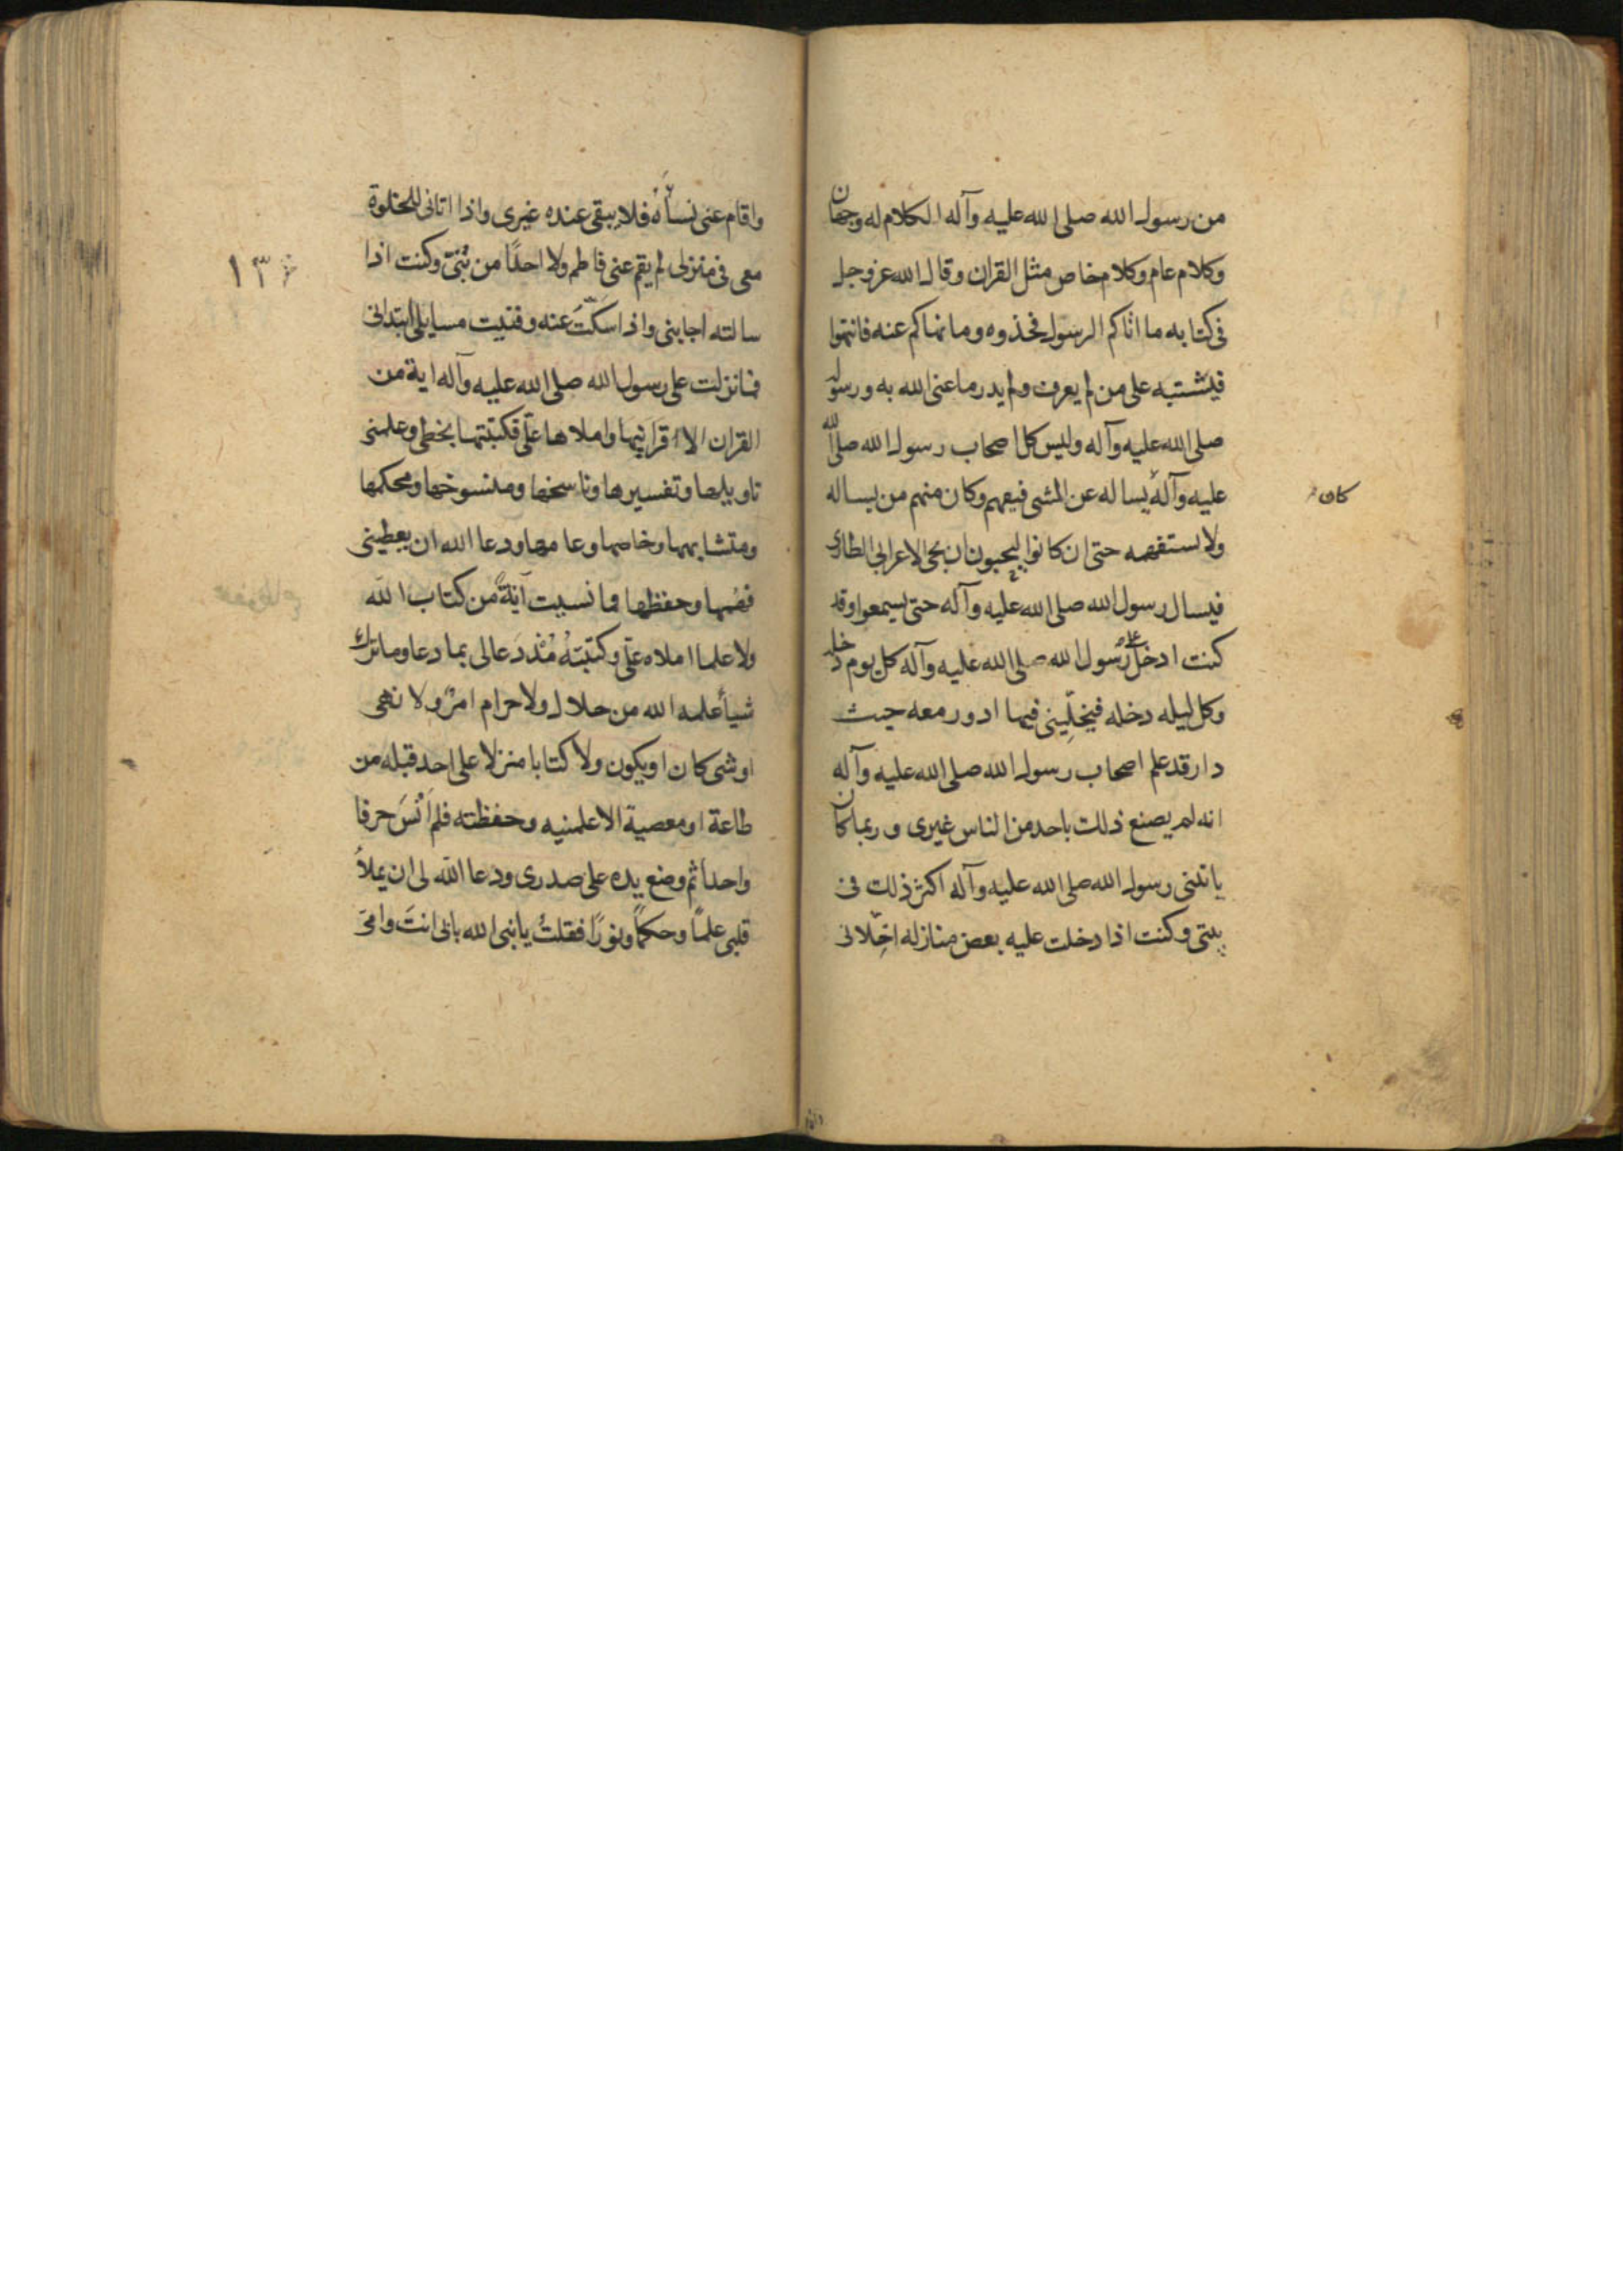 من رسول الله صلى الله عليه وآله الكلام له وجهان
وكلام عام وكلام خاص مثل القران وقال الله عز وجل
فى كتابه ما اتاكم الرسول فخذوه وما نهاكم عنه فانتهوا
فيشتبه على من لم يعرف ولم يدر ما عنى الله به ورسوله
صلى الله عليه وآله وليس كل اصحاب رسول الله صلى الله
عليه وآله يساله عن الشى فيفهم وكان منهم من يساله
كان
ولا يستفهمه حتى ان كانوا ليحبون ان يجى الاعرابى الطارى
فيسال رسول الله صلى الله عليه وآله حتى يسمعوا وقد
كنت ادخل على رسول الله صلى الله عليه وآله كل يوم دخله
وكل ليله دخله فيخلّينى فيها ادور معه حيث
دار قد علم اصحاب رسول الله صلى الله عليه وآله
انه لم يصنع ذلك باحد من الناس غيرى وربما كان
ياتينى رسول الله صلى الله عليه وآله اكثر ذلك فى
بيتى وكنت اذا دخلت عليه بعض منازله اخلّانى
واقام عنى نساؤه فلا يبقى عنده غيرى واذا اتانى للخلوة
١٣
معى فى منزلى لم يقم عنى فاطم ولا احدًا من بنىّ وكنت اذا
سالته اجابنى واذا سكتّ عنه وفنيت مسايلى ابتدانى
فما نزلت على رسول الله صلى الله عليه وآله اية من
القران الا اقرانيها واملاها علىّ فكتبتها بخطى وعلمنى
تاويلها وتفسيرها وناسخها ومنسوخها ومحكمها
ومتشابهها وخاصها وعامها ودعا الله ان يعطينى
فهمها وحفظها فما نسيت آيةً من كتاب الله
ولا علما املاه علىّ وكتبتهُ مُنْذ دَعا لى بما دعا وما ترك
شيأ علمه الله من حلال ولا حرام امرٌ ولا نهى
او شى كان او يكون ولا كتابا منزلا على احد قبله من
طاعة او معصية الا علمنيه وحفظته فلم اَنْسَ حرفا
واحداً ثم وضع يده على صدرى ودعا الله لى ان يملأ
قلبى علمًا وحكمًا ونورًا فقلتُ يا نبى الله بابى انتَ وامى